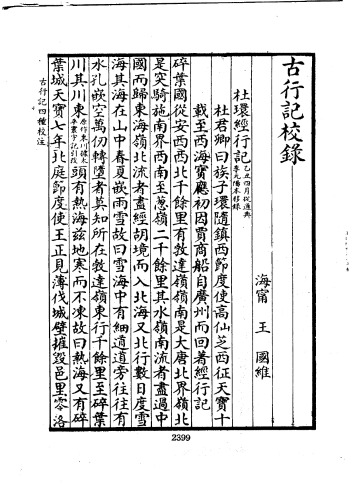 古行記校錄
海甯 王國維
杜環經行記乙丑四月從通典李元陽本移錄
杜君卿曰族子環隨鎮西節度使高仙芝西征天寶十
載至西海寶應初因賈商船自廣州而回著經行記
碎葉國從安西西北千餘里有敦達嶺嶺南是大唐北界嶺北
是突騎施南界西南至葱嶺二千餘里其水嶺南流者盡過中
國而歸東海嶺北流者盡經胡境而入北海又北行數日度雪
海其海在山中春夏嵌雨雪故曰雪海中有細道道旁往往有
水孔嵌空萬仞轉墮者莫知所在敦達嶺東行千餘里至碎葉
川其川東頭有熱海茲地寒而不凍故曰熱海又有碎
葉城天寶七年北庭節度使王正見薄伐城壁摧毀邑里零落
古行記四種校注
2399